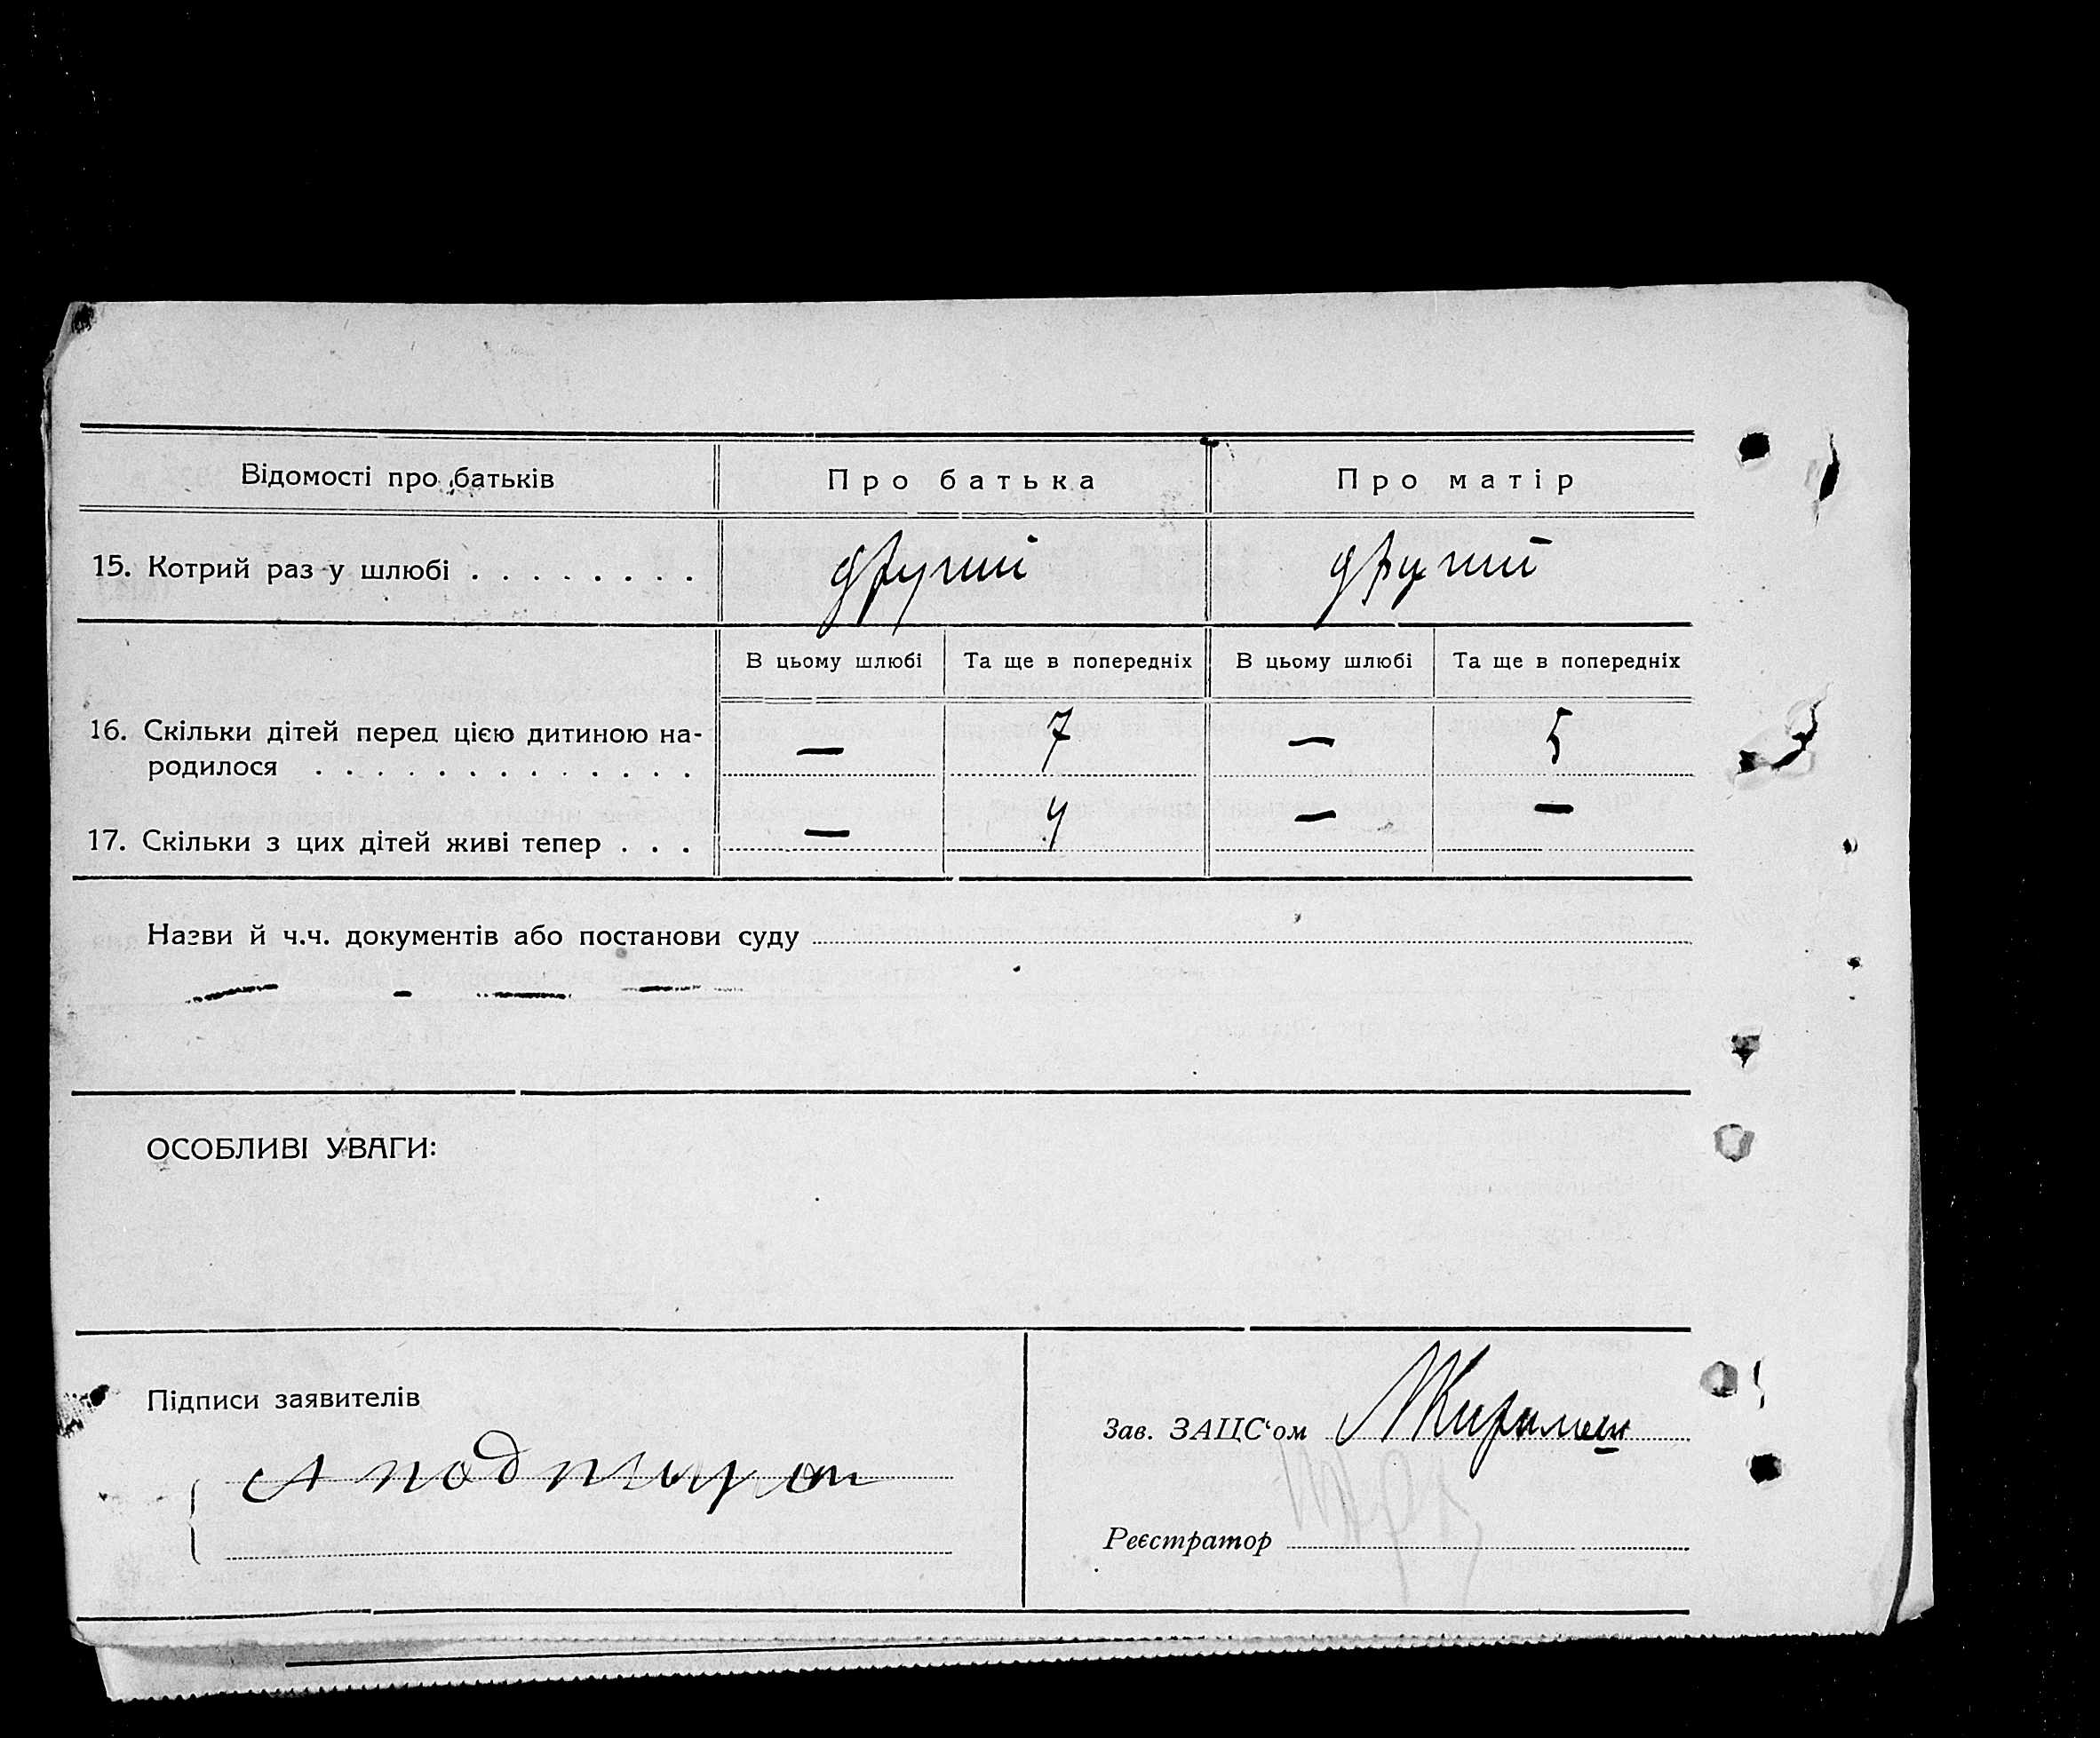 Відомості про батьків Про батька Про матір
15. Котрий раз у шлюбі . . . . . . . . другий другий
В цьому шлюбі Та ще в попередніх В цьому шлюбі Та ще в попередніх
16. Скільки дітей перед цією дитиною на- — 7 — 5
родилося . . . . . . . . . . . . .
17. Скільки з цих дітей живі тепер . . . — 4 — —
Назви й ч.ч. документів або постанови суду
ОСОБЛИВІ УВАГИ:
Підписи заявителів
Зав. ЗАЦС‘ом
Реєстратор